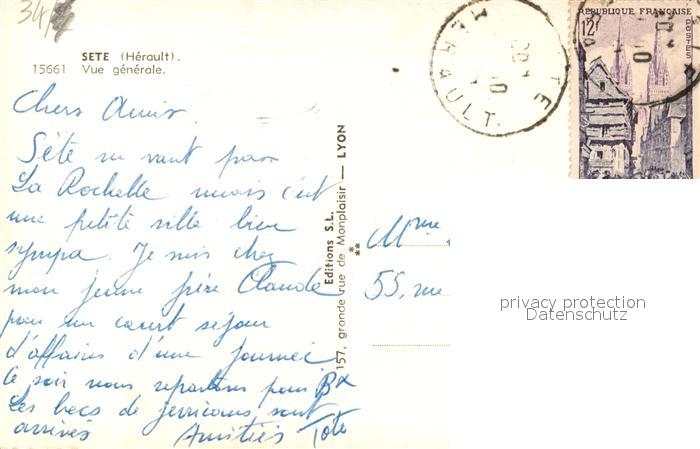 34
SETE (Hérault).
15661 Vue générale.
Chers Amis
Sète ne vaut pas
La Rochelle mais c'est
une petite ville bien
sympa. Je suis chez
mon jeune frère Claude
pour un court séjour
d'affaires d'une journée
Ce soir nous repartons pour Bx
Les becs de jerricans sont
arrivés Amitiés Toto
Editions S.L.
157, grande rue de Monplaisir — LYON
Mme
55, rue
HERAULT
RÉPUBLIQUE FRANÇAISE
12F
POSTES
privacy protection
Datenschutz